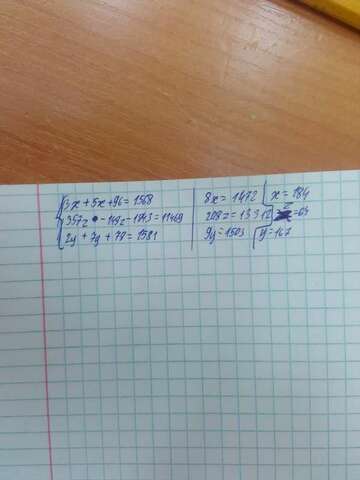 3x + 5x + 96 = 1568 | 8x = 1472 | x = 184
357z - 149z - 1843 = 11469 | 208z = 13312 | z = 64
2y + 7y + 78 = 1581 | 9y = 1503 | y = 167